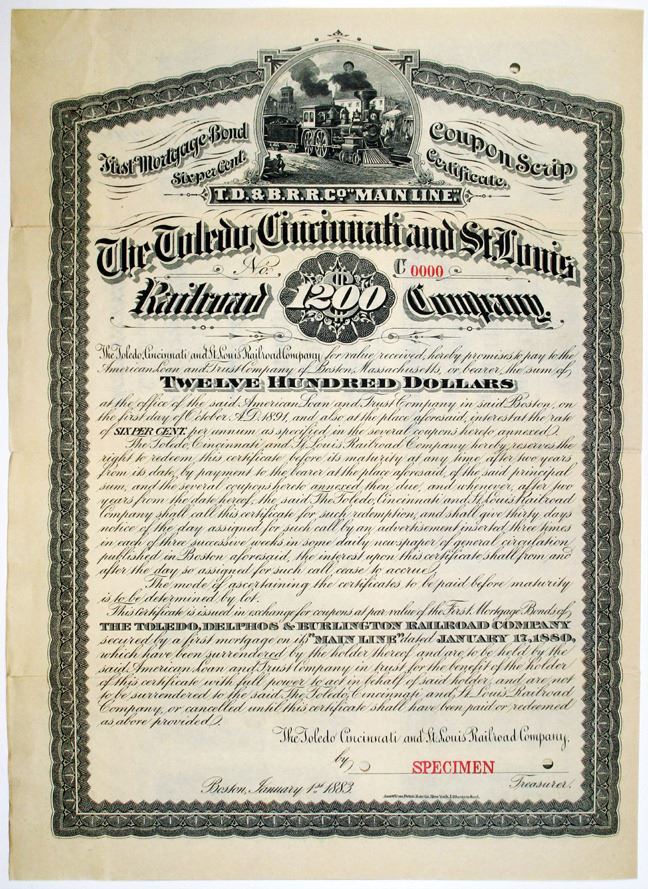 First Mortgage Bond
Six per Cent.
Coupon Scrip
Certificate.
T.D. & B.R.R.Co "MAIN LINE".
The Toledo, Cincinnati and St. Louis
No. C 0000
Railroad $1200 Company.
The Toledo, Cincinnati and St. Louis Railroad Company, for value received, hereby promises to pay to the
American Loan and Trust Company of Boston, Massachusetts, or bearer, the sum of
TWELVE HUNDRED DOLLARS
at the office of the said American Loan and Trust Company in said Boston, on
the first day of October A.D. 1891, and also at the place aforesaid, interest at the rate
of SIX PER CENT. per annum as specified in the several coupons hereto annexed.
The Toledo, Cincinnati and St. Louis Railroad Company hereby reserves the
right to redeem this certificate before its maturity at any time after two years
from its date, by payment to the bearer at the place aforesaid, of the said principal
sum, and the several coupons hereto annexed then due, and whenever, after two
years from the date hereof the said The Toledo, Cincinnati and St. Louis Railroad
Company shall call this certificate for such redemption, and shall give thirty days
notice of the day assigned for such call by an advertisement inserted three times
in each of three successive weeks in some daily newspaper of general circulation,
published in Boston aforesaid, the interest upon this certificate shall from and
after the day so assigned for such call, cease to accrue.
The mode of ascertaining the certificates to be paid before maturity
is to be determined by lot.
This Certificate is issued in exchange for coupons at par value of the First Mortgage Bonds of
THE TOLEDO, DELPHOS & BURLINGTON RAILROAD COMPANY
secured by a first mortgage on its "MAIN LINE" dated JANUARY 17, 1880,
which have been surrendered by the holder thereof and are to be held by the
said American Loan and Trust Company in trust for the benefit of the holder
of this certificate with full power to act in behalf of said holder, and are not
to be surrendered to the said The Toledo, Cincinnati and St. Louis Railroad
Company, or cancelled until this certificate shall have been paid or redeemed
as above provided.
The Toledo Cincinnati and St. Louis Railroad Company.
by SPECIMEN
Boston, January 1st 1883. Treasurer.